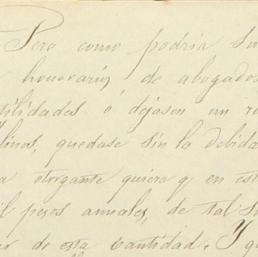 Pero como podria su
honorarios de abogados
tilidades ó dejasen un re
linos, quedase sin la debida
a otorgante quiere q en est
il pesos anuales, de tal su
de esta cantidad. Y q